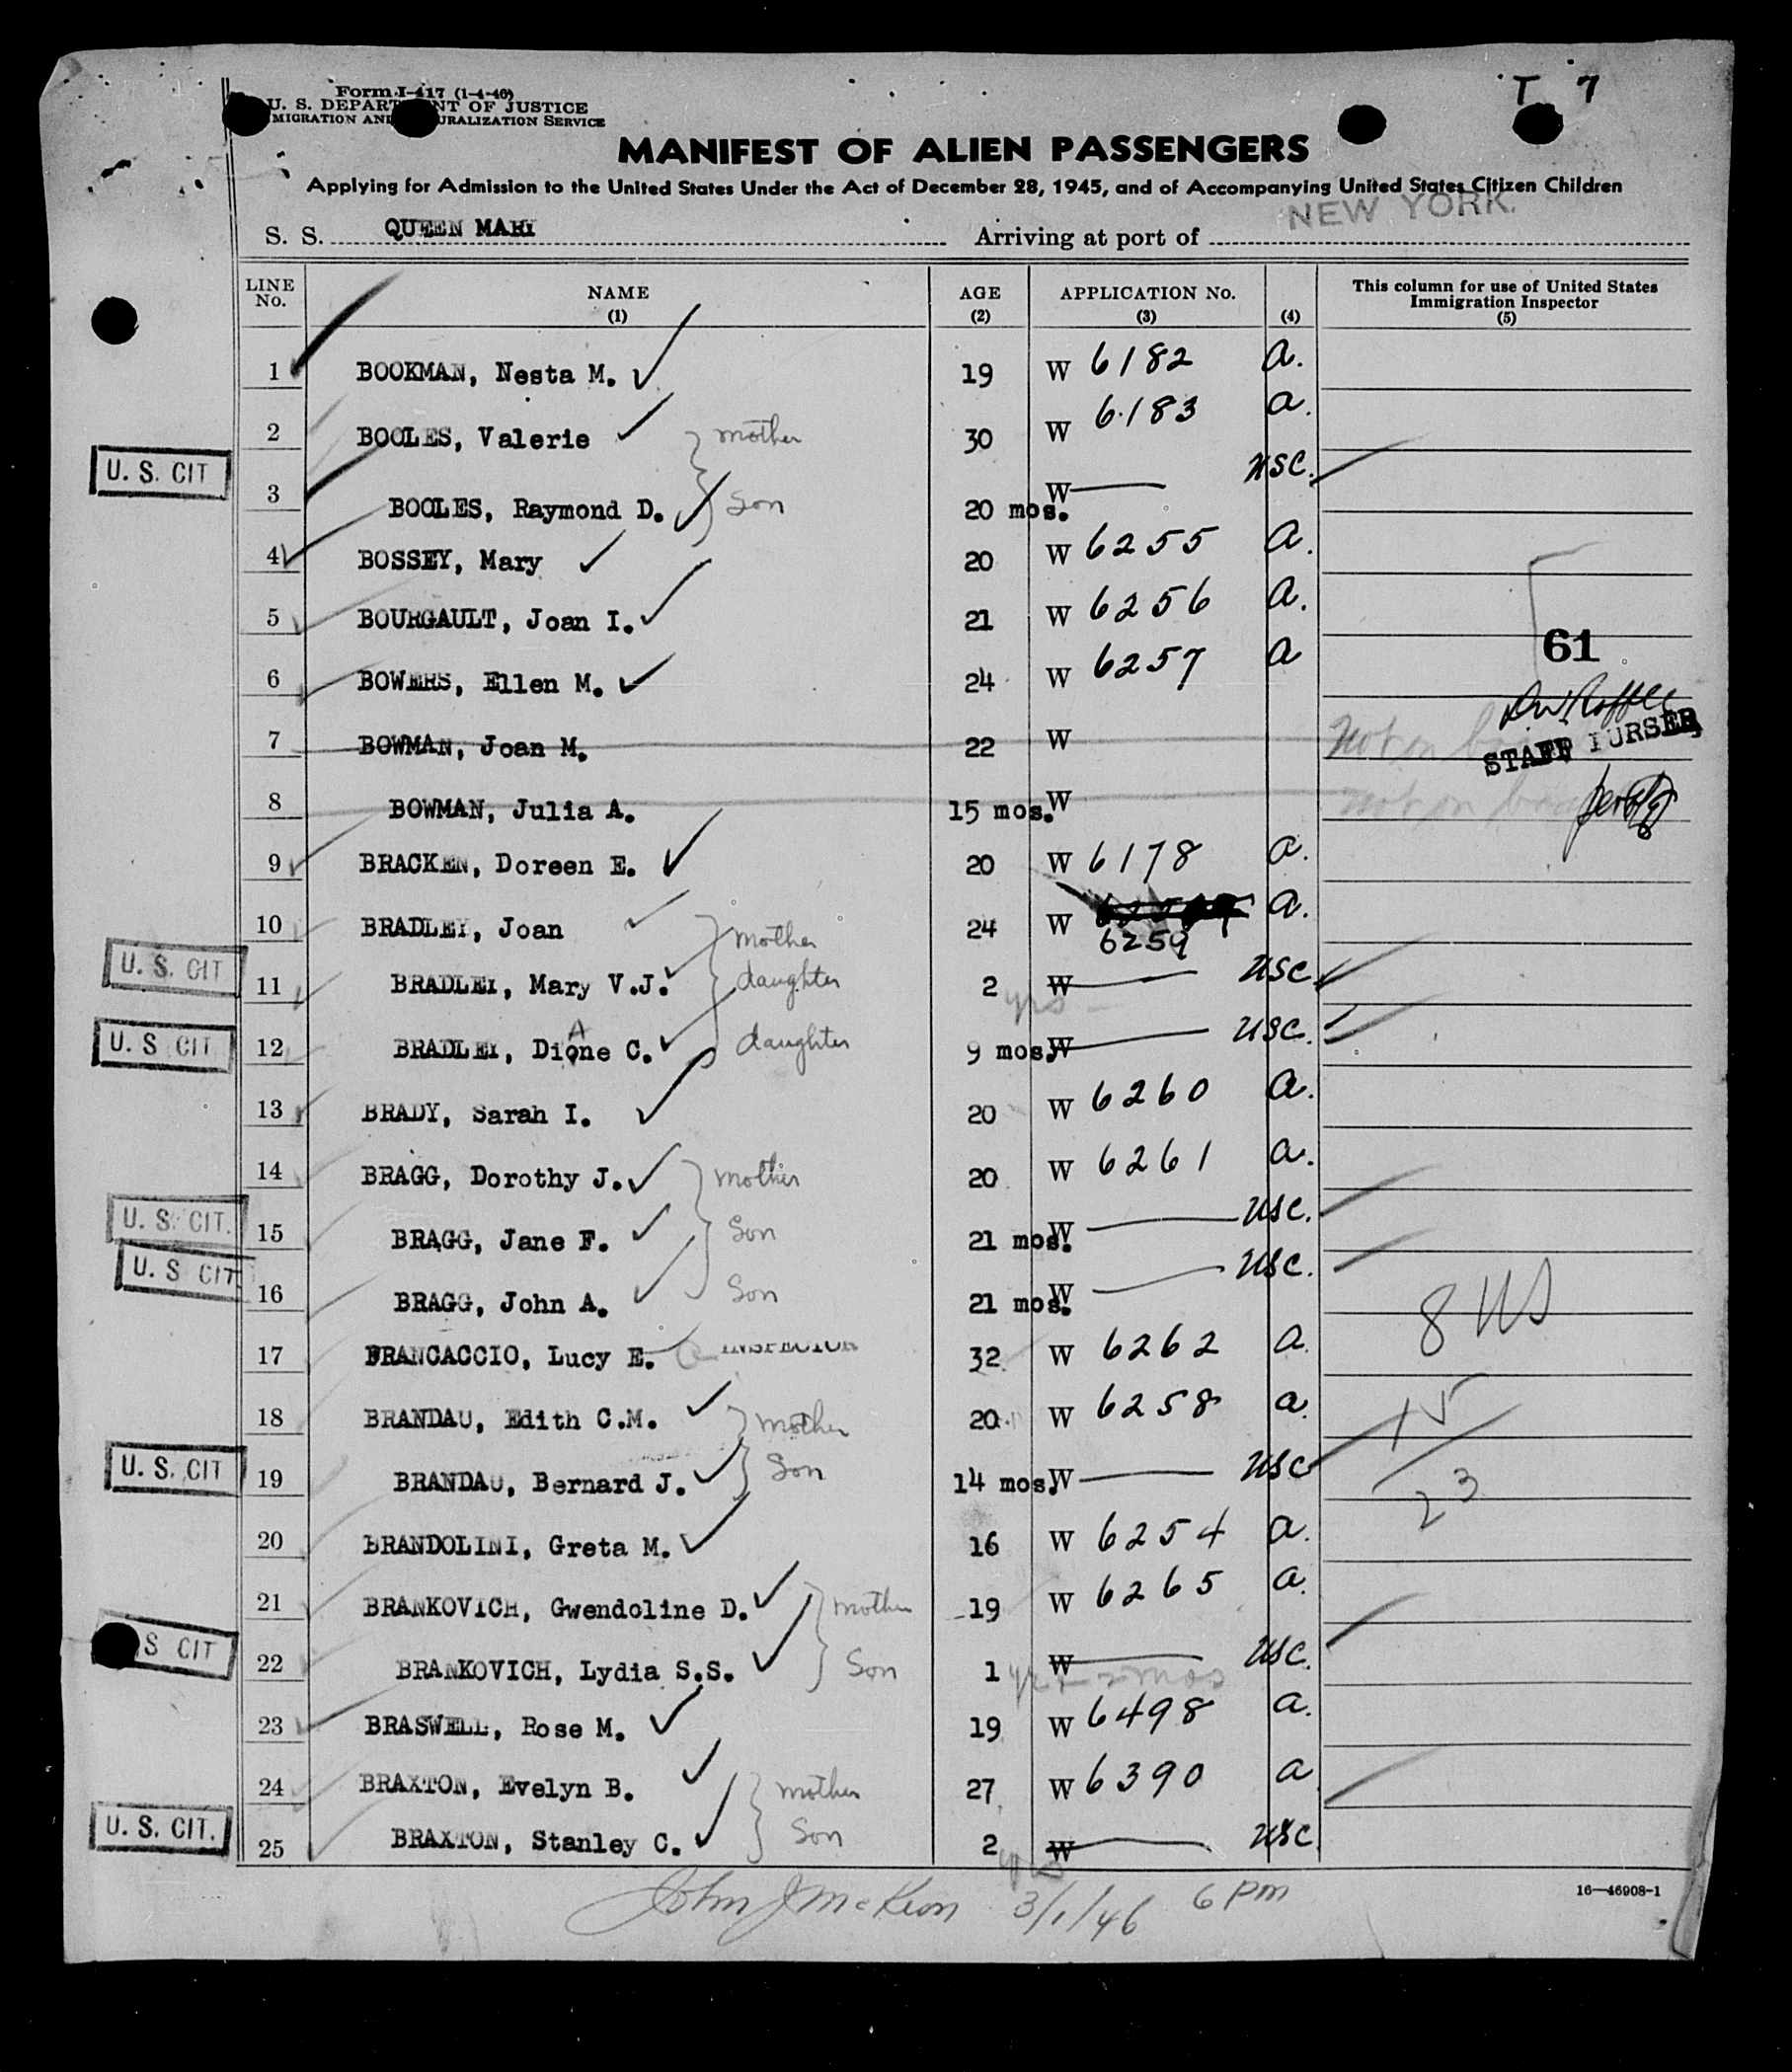 T 7
Form I-417 (1-4-46)
U. S. DEPARTMENT OF JUSTICE
MIGRATION AND URALIZATION SERVICE
MANIFEST OF ALIEN PASSENGERS
Applying for Admission to the United States Under the Act of December 28, 1945, and of Accompanying United States Citizen Children
S. S. QUEEN MARY Arriving at port of NEW YORK.
LINE No. NAME (1) AGE (2) APPLICATION No. (3) (4) This column for use of United States Immigration Inspector (5)
1 BOOKMAN, Nesta M. 19 W 6182 a.
2 BOOLES, Valerie mother 30 W 6183 a.
U. S. CIT 3 BOOLES, Raymond D. Son 20 mos. W USC.
4 BOSSEY, Mary 20 W 6255 a.
5 BOURGAULT, Joan I. 21 W 6256 a.
6 BOWERS, Ellen M. 24 W 6257 a
61
7 BOWMAN, Joan M. 22 W not on
STAFF PURSER
8 BOWMAN, Julia A. 15 mos. W not on
9 BRACKEN, Doreen E. 20 W 6178 a.
10 BRADLEY, Joan mother 24 W 6259 a.
U. S. CIT 11 BRADLEY, Mary V.J. daughter 2 yrs W USC
U. S CIT 12 BRADLEY, Dione C. A daughter 9 mos. W USC.
13 BRADY, Sarah I. 20 W 6260 a.
14 BRAGG, Dorothy J. mother 20 W 6261 a.
U. S. CIT. 15 BRAGG, Jane F. Son 21 mos. W USC.
U. S CIT 16 BRAGG, John A. Son 21 mos. W USC.
8 US
17 BRANCACCIO, Lucy E. INSPECTOR 32 W 6262 a.
18 BRANDAU, Edith C.M. mother 20 W 6258 a.
15
U. S. CIT 19 BRANDAU, Bernard J. Son 14 mos. W USC
23
20 BRANDOLINI, Greta M. 16 W 6254 a.
21 BRANKOVICH, Gwendoline D. mother 19 W 6265 a.
S CIT 22 BRANKOVICH, Lydia S.S. Son 1 W USC.
23 BRASWELL, Rose M. 19 W 6498 a.
24 BRAXTON, Evelyn B. mother 27 W 6390 a
U. S. CIT. 25 BRAXTON, Stanley C. Son 2 yrs W USC
John J McKeon 3/1/46 6 pm
16—46908-1